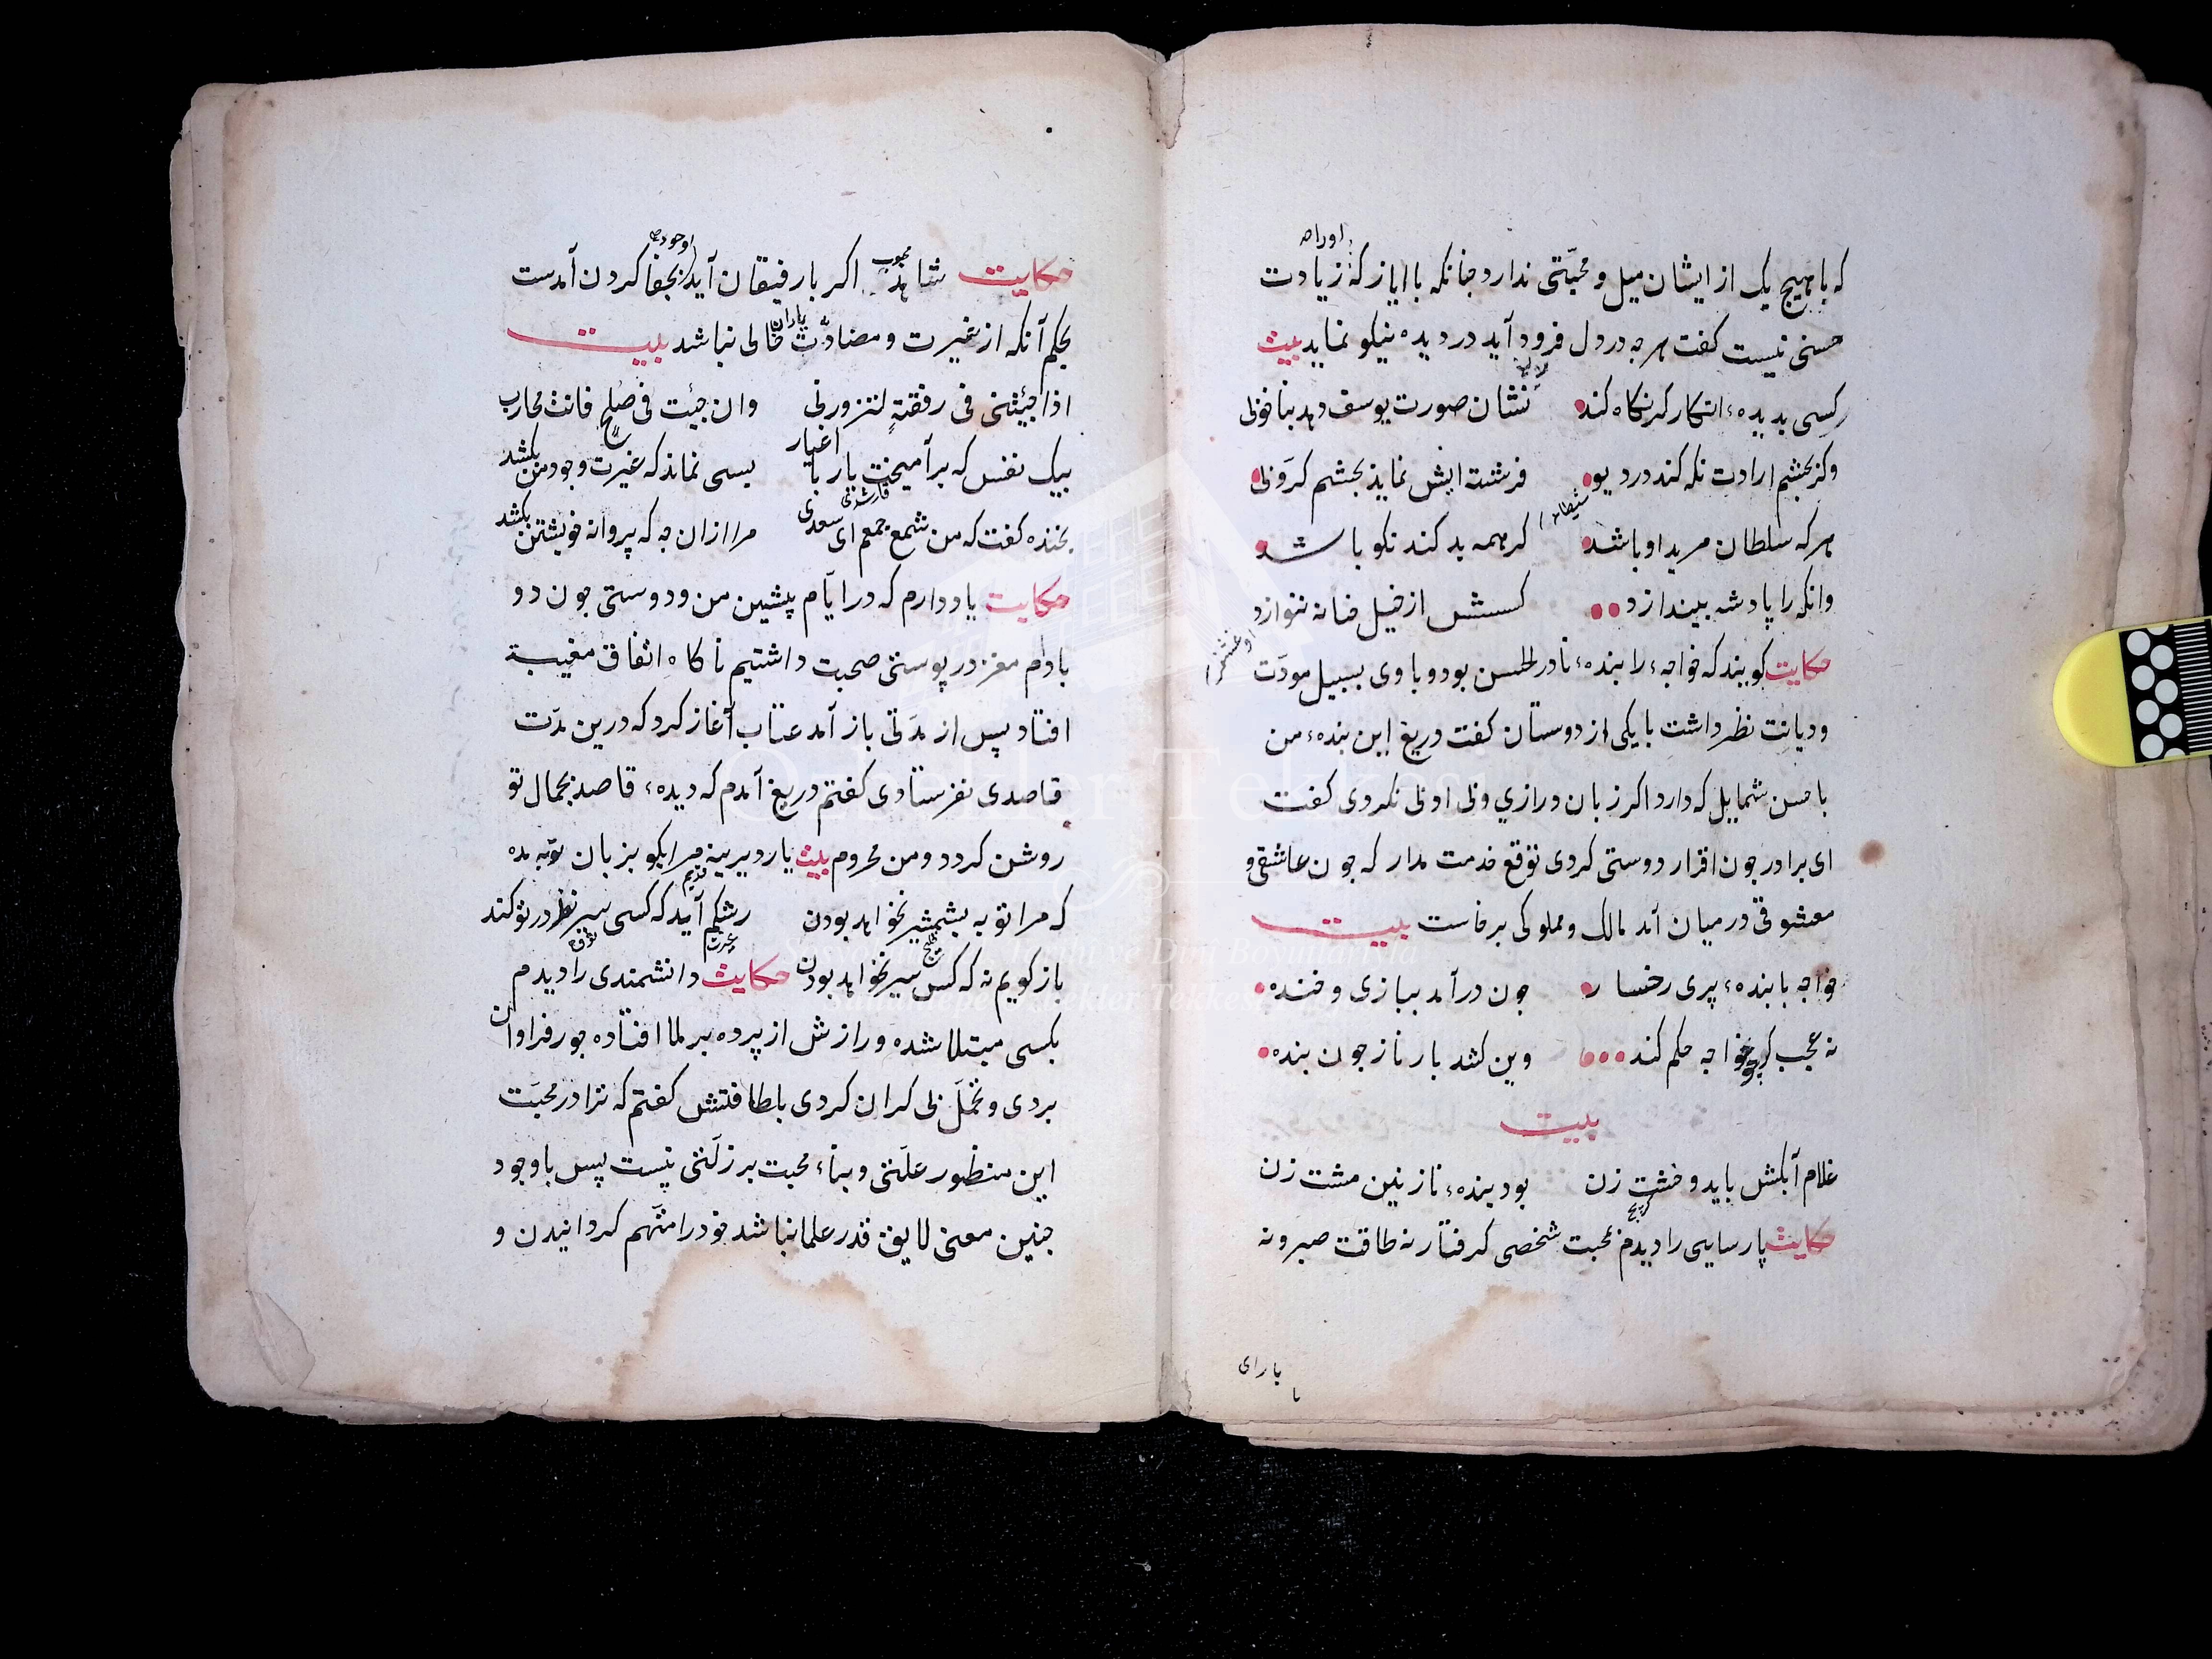 که با هیچ یک از ایشان میل و محبّتی ندارد جنانکه با ایاز که زیادت
حسنی نیست کفت هر جه در دل فرود آید در دیده نیکو نماید بیت
کسی بدیدهٔ انکار کر نکاه کند نشان صورت یوسف دهد بناخوبی
وکر بجشم ارادت نکه کند در دیو فرشته ایش نماید بجشم کروبی
هر که سلطان مرید او باشد کر همه بد کند نکو باشد
وانکه را پادشه بیندازد کسش از خیل خانه ننوازد
حکایت کویند که خواجهٔ را بندهٔ نادر الحسن بود و با وی بسبیل مودّت
و دیانت نظر داشت با یکی از دوستان کفت دریغ این بندهٔ من
با حسن شمایل که دارد اکر زبان درازی وبی ادبی نکردی کفت
ای برادر جون اقرار دوستی کردی توقع خدمت مدار که جون عاشقی و
معشوقی درمیان آمد مالک و مملوکی برخاست بیت
خواجه با بندهٔ پری رخسار جون درآمد ببازی و خنده
نه عجب کر جو خواجه حکم کند وین کشد بار ناز جون بنده
بیت
غلام آبکش باید و خشت زن بود بندهٔ نازنین مشت زن
حکایت پارسایی را دیدم بمحبت شخصی کرفتار نه طاقت صبر و نه
یارای
حکایت شاهد اکر با رفیقان آید بجفا کردن آمدست
محبوب
بحکم آنکه از غیرت و مضادّت یاران خالی نباشد بیت
اذا جئتنی فی رفقةٍ لتزورنی وان جئت فی صلح فانت محارب
بیک نفس که برآمیخت یار با اغیار بسی نماند که غیرت وجود من بکشد
بخنده کفت که من شمع جمعم ای سعدی مرا ازان جه که پروانه خویشتن بکشد
حکایت یاد دارم که در ایّام پیشین من و دوستی جون دو
بادام مغز در پوستی صحبت داشتیم ناکاه اتفاق مغیب
افتاد پس از مدّتی باز آمد عتاب آغاز کرد که درین مدّت
قاصدی نفرستادی کفتم دریغ آمدم که دیدهٔ قاصد بجمال تو
روشن کردد و من محروم بیت یار دیرینه مرا بکو بزبان توبه مده
که مرا توبه بشمشیر نخواهد بودن رشکم آید که کسی سیر نظر در تو کند
باز کویم نه که کس سیر نخواهد بودن حکایت دانشمندی را دیدم
بکسی مبتلا شده و رازش از پرده برملا افتاده جور فراوان
بردی و تحمّل بی کران کردی بلطافتش کفتم که ترا در محبّت
این منظور علّتی و بناء محبت بر زلّتی نیست پس با وجود
جنین معنی لایق قدر علما نباشد خود را متّهم کردانیدن و